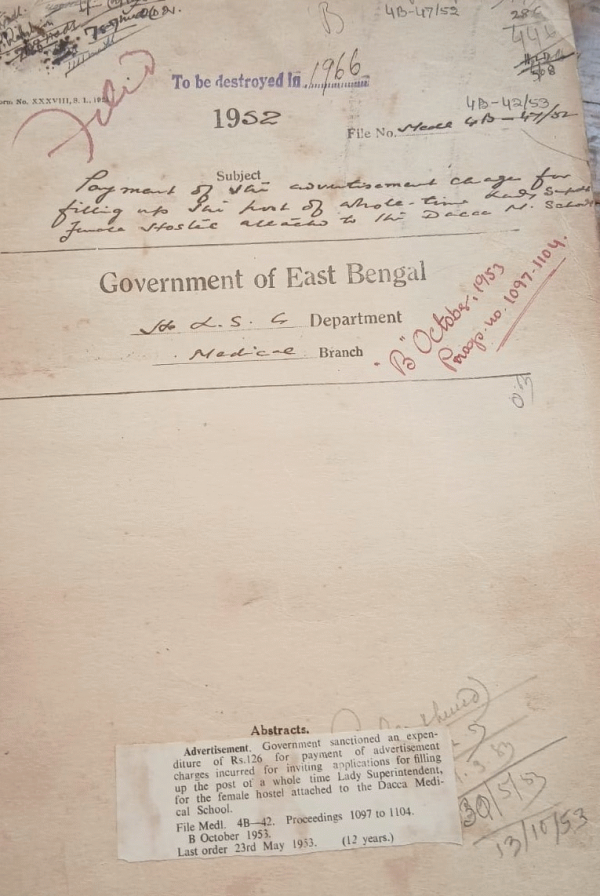 B
4B-47/52
286
To be destroyed In 1966
Form No. XXXVIII, S. I., 19
1952
4B-42/53
File No. Medl 4B-47/52
Subject
Payment of the advertisement charges for
filling up the post of whole-time Lady Supdt
female Hostel attached to the Dacca M. School
Government of East Bengal
H & L. S. G Department
Medical Branch
"B" October, 1953
Progs. no. 1097-1104.
Abstracts.
Advertisement. Government sanctioned an expen-
diture of Rs.126 for payment of advertisement
charges incurred for inviting applications for filling
up the post of a whole time Lady Superintendent,
for the female hostel attached to the Dacca Medi-
cal School.
File Medl. 4B—42. Proceedings 1097 to 1104.
B October 1953.
Last order 23rd May 1953. (12 years.)
30/5/53
13/10/53